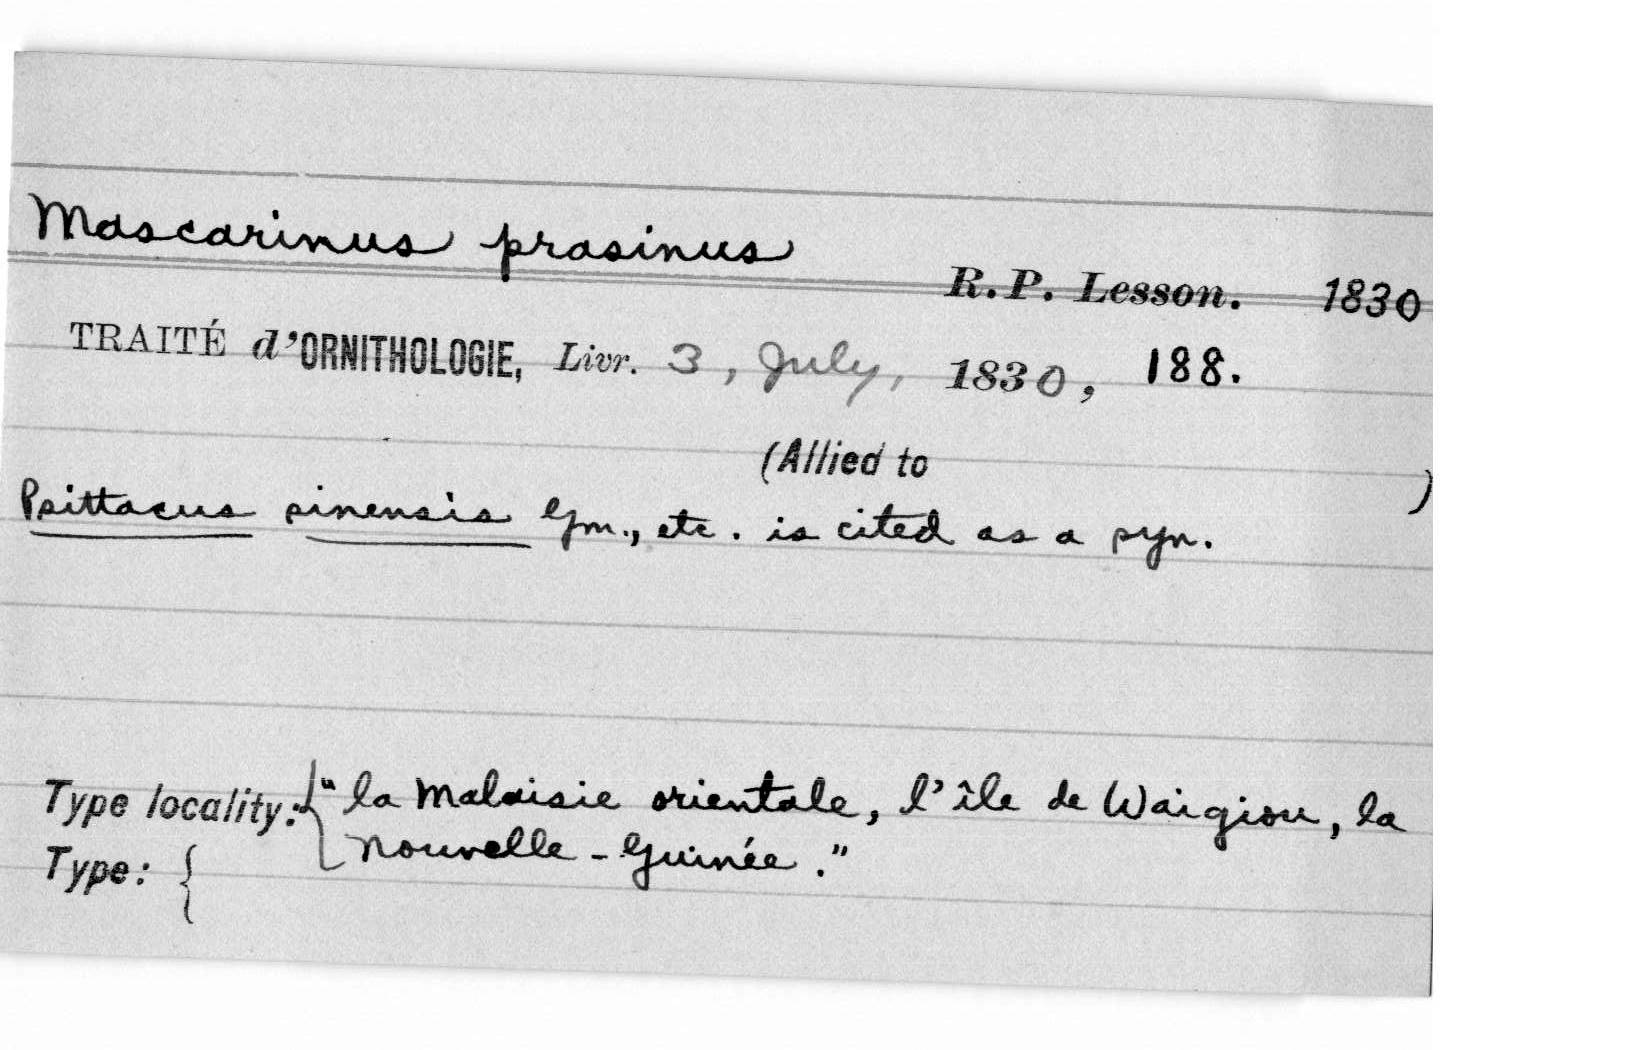 Mascarinus prasinus
R.P. Lesson. 1830
TRAITÉ d'ORNITHOLOGIE, Livr. 3, July, 1830, 188.
(Allied to )
Psittacus sinensis Gm., etc. is cited as a syn.
Type locality: { "la Malaisie orientale, l'île de Waigiou, la
Nouvelle-Guinée."
Type: {